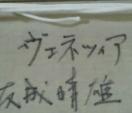 ヴェネツィア
友成晴雄